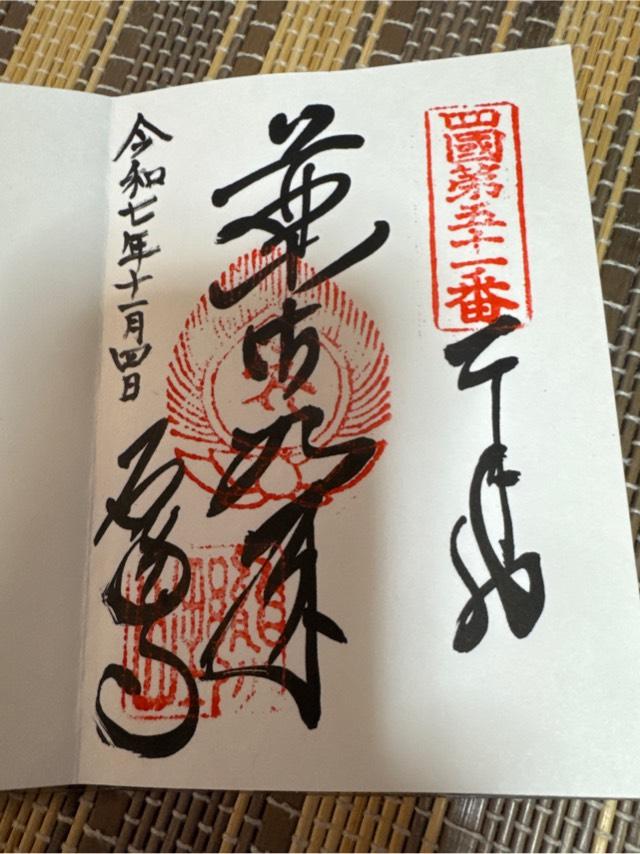 四國第五十一番
奉拝
薬師如来
令和七年十一月四日
石手寺